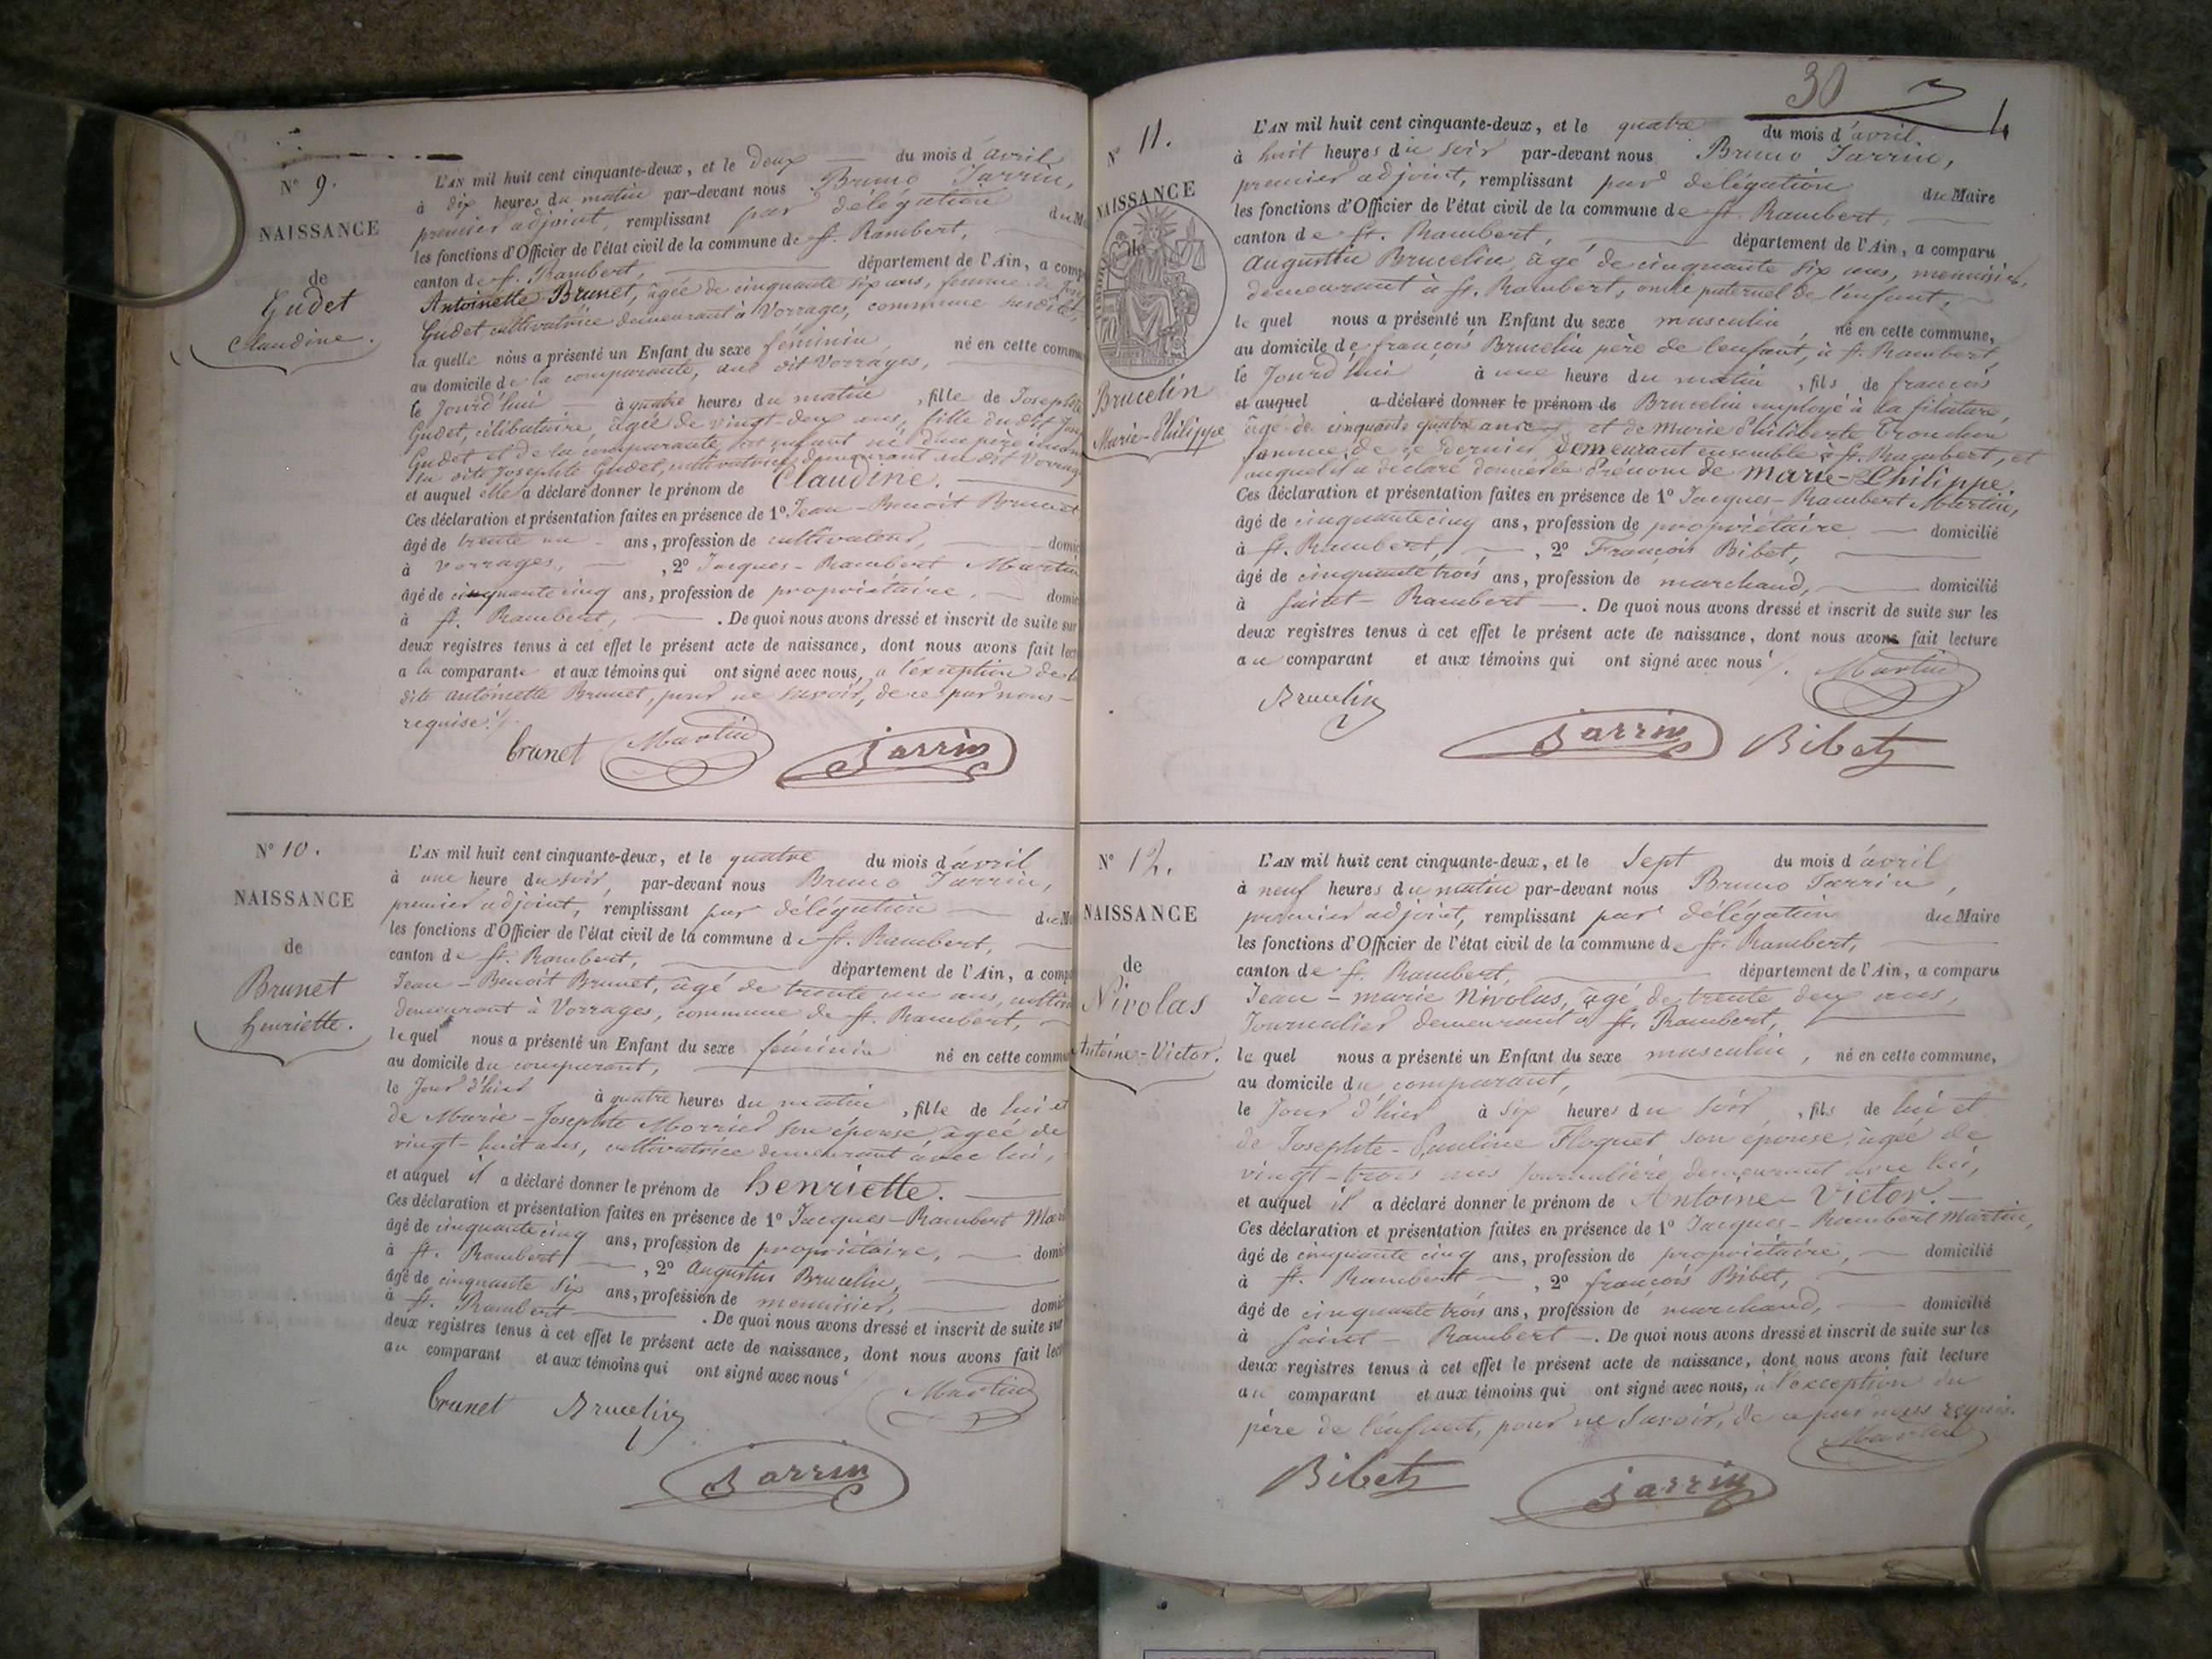 N° 9.
NAISSANCE
de
Gudet
Claudine.
L'AN mil huit cent cinquante-deux, et le deux du mois d'avril
à dix heures du matin par-devant nous Bruno Jarrin,
premier adjoint, remplissant par délégation du M
les fonctions d'Officier de l'état civil de la commune de St. Rambert,
canton de St. Rambert, département de l'Ain, a comp
Antoinette Brunet, âgée de cinquante six ans, femme de
Gudet, cultivatrice demeurant à Vorrages, commune susdite,
la quelle nous a présenté un Enfant du sexe féminin, né en cette commu
au domicile de la comparante, au dit Vorrages,
le Jourd'hui à quatre heures du matin, fille de Josephte
Gudet, célibataire, âgée de vingt-deux ans, fille du dit
Gudet et de la comparante, cet enfant né d'un père
la dite Josephte Gudet, cultivatrice, demeurant au dit Vorrag
et auquel elle a déclaré donner le prénom de Claudine.
Ces déclaration et présentation faites en présence de 1° Jean-Benoit Brunet
âgé de trente un ans, profession de cultivateur, domic
à Vorrages, , 2° Jacques-Rambert Martin
âgé de cinquante cinq ans, profession de propriétaire, domic
à St. Rambert, . De quoi nous avons dressé et inscrit de suite sur
deux registres tenus à cet effet le présent acte de naissance, dont nous avons fait lect
a la comparante et aux témoins qui ont signé avec nous, a l'exception de la
dite antoinette Brunet, pour ne savoir, de ce par nous
requise.
brunet Martin Jarrin
N° 10.
NAISSANCE
de
Brunet
henriette.
L'AN mil huit cent cinquante-deux, et le quatre du mois d'avril
à une heure du soir, par-devant nous Bruno Jarrin,
premier adjoint, remplissant par délégation du M
les fonctions d'Officier de l'état civil de la commune de St. Rambert,
canton de St. Rambert, département de l'Ain, a comp
Jean-Benoit Brunet, âgé de trente un ans, cultiv
demeurant à Vorrages, commune de St. Rambert,
lequel nous a présenté un Enfant du sexe féminin né en cette commu
au domicile du comparant,
le Jour d'hier à quatre heures du matin, fille de lui et
de Marie-Josephte Morrier son épouse, âgée de
vingt-huit ans, cultivatrice demeurant avec lui,
et auquel il a déclaré donner le prénom de henriette.
Ces déclaration et présentation faites en présence de 1° Jacques-Rambert Mar
âgé de cinquante cinq ans, profession de propriétaire, domic
à St. Rambert, , 2° Augustin Brucelin,
âgé de cinquante six ans, profession de menuisier, domic
à St. Rambert . De quoi nous avons dressé et inscrit de suite sur
deux registres tenus à cet effet le présent acte de naissance, dont nous avons fait lect
au comparant et aux témoins qui ont signé avec nous
brunet Brucelin Martin
Jarrin
30
4
N° 11.
NAISSANCE
de
Brucelin
Marie-Philippe
L'AN mil huit cent cinquante-deux, et le quatre du mois d'avril
à huit heures du soir par-devant nous Bruno Jarrin,
premier adjoint, remplissant par délégation du Maire
les fonctions d'Officier de l'état civil de la commune de St. Rambert,
canton de St. Rambert, département de l'Ain, a comparu
Augustin Brucelin, âgé de cinquante six ans, menuisier,
demeurant à St. Rambert, oncle paternel de l'enfant,
le quel nous a présenté un Enfant du sexe masculin, né en cette commune,
au domicile de françois Brucelin père de l'enfant, à St. Rambert,
le Jourd'hui à une heure du matin, fils de francois
et auquel a déclaré donner le prénom de Brucelin employé à la filature,
âgé de cinquante quatre ans et de Marie Philiberte Trouchon
femme de ce dernier, demeurant ensemble à St. Rambert, et
auquel il a déclaré donner le Prénom de Marie-Philippe.
Ces déclaration et présentation faites en présence de 1° Jacques-Rambert Martin,
âgé de cinquante cinq ans, profession de propriétaire domicilié
à St. Rambert, , 2° François Bibet,
âgé de cinquante trois ans, profession de marchand, domicilié
à Saint-Rambert . De quoi nous avons dressé et inscrit de suite sur les
deux registres tenus à cet effet le présent acte de naissance, dont nous avons fait lecture
au comparant et aux témoins qui ont signé avec nous. Martin
Brucelin
Jarrin Bibet
N° 12.
NAISSANCE
de
Nivolas
Antoine-Victor.
L'AN mil huit cent cinquante-deux, et le Sept du mois d'avril
à neuf heures du matin par-devant nous Bruno Jarrin,
premier adjoint, remplissant par délégation du Maire
les fonctions d'Officier de l'état civil de la commune de St. Rambert,
canton de St. Rambert, département de l'Ain, a comparu
Jean-marie Nivolas, âgé de trente deux ans,
Journalier demeurant à St. Rambert,
le quel nous a présenté un Enfant du sexe masculin, né en cette commune,
au domicile du comparant,
le Jour d'hier à six heures du soir, fils de lui et
de Josephte-Pauline Floquet son épouse, âgée de
vingt-trois ans Journalière, demeurant avec lui,
et auquel il a déclaré donner le prénom de Antoine-Victor.
Ces déclaration et présentation faites en présence de 1° Jacques-Rambert Martin,
âgé de cinquante cinq ans, profession de propriétaire, domicilié
à St. Rambert , 2° françois Bibet,
âgé de cinquante trois ans, profession de marchand, domicilié
à Saint-Rambert . De quoi nous avons dressé et inscrit de suite sur les
deux registres tenus à cet effet le présent acte de naissance, dont nous avons fait lecture
au comparant et aux témoins qui ont signé avec nous, a l'exception du
père de l'enfant, pour ne savoir, de ce par nous requis.
Martin
Bibet Jarrin